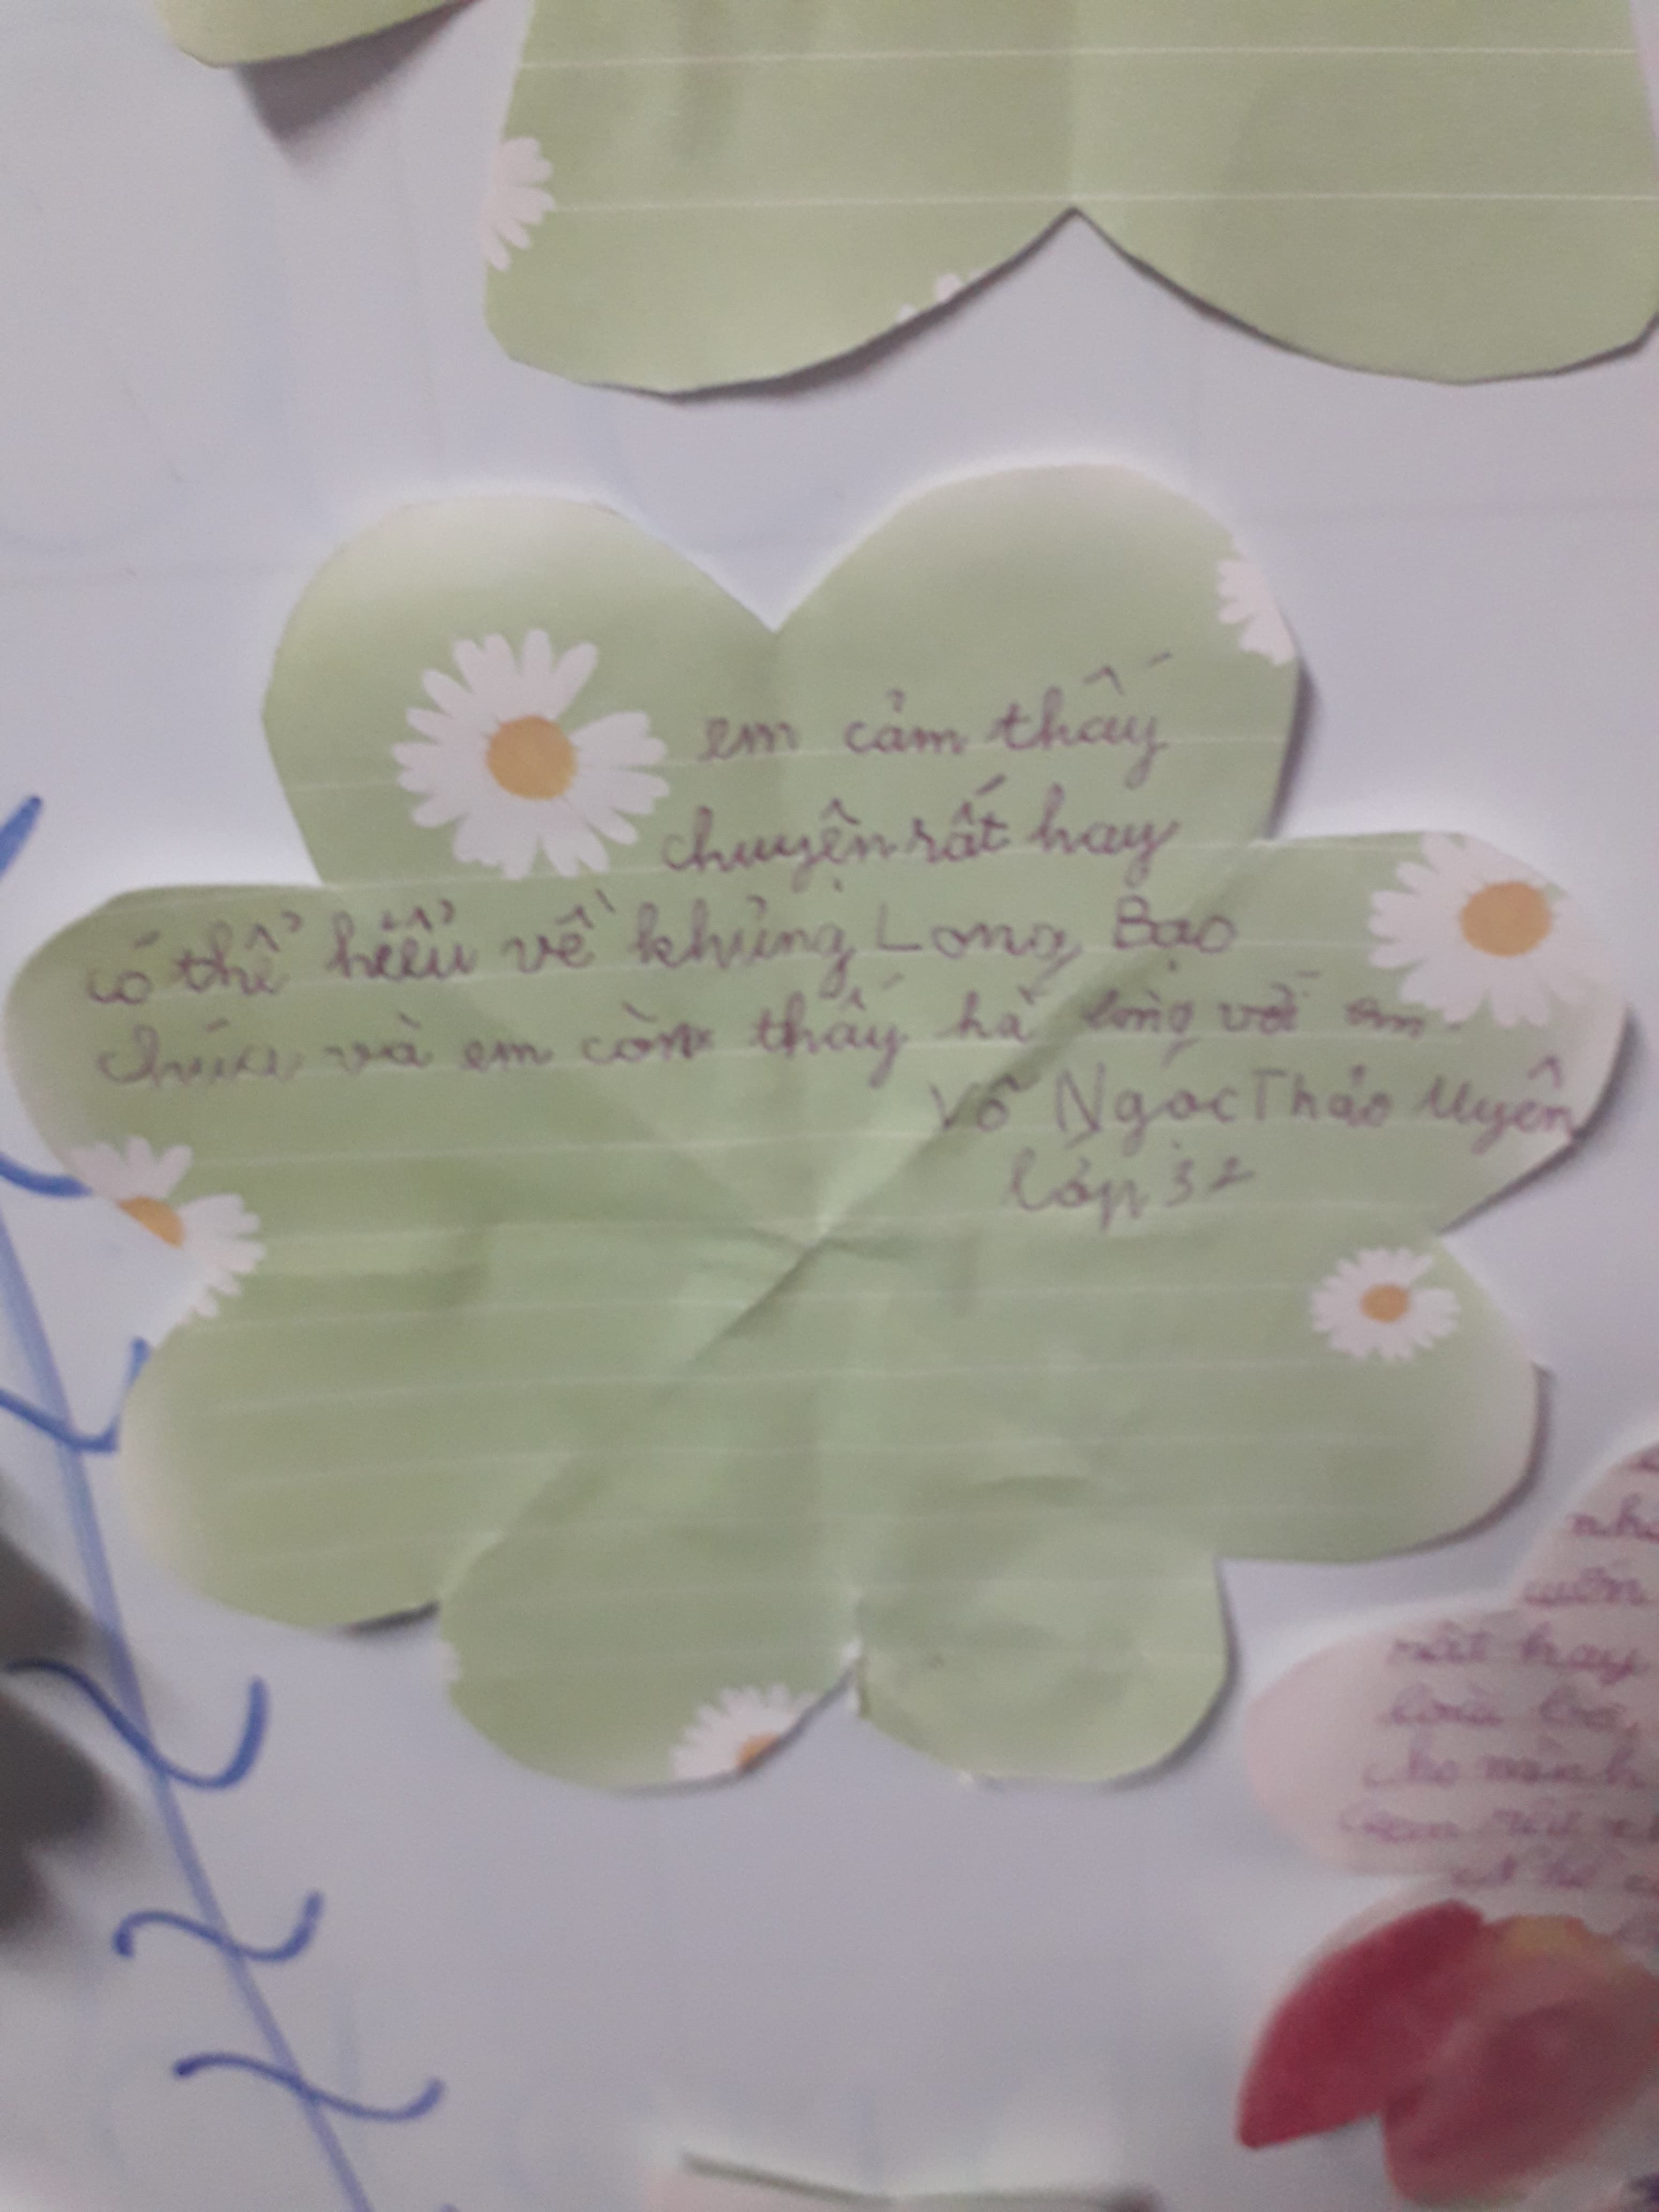 em cảm thấy
chuyện rất hay
có thể hiểu về khủng Long Bạo
chúa và em còn thấy hà lòng với em
Võ Ngọc Thảo Uyên
lớp 32
rất hay
cho mình